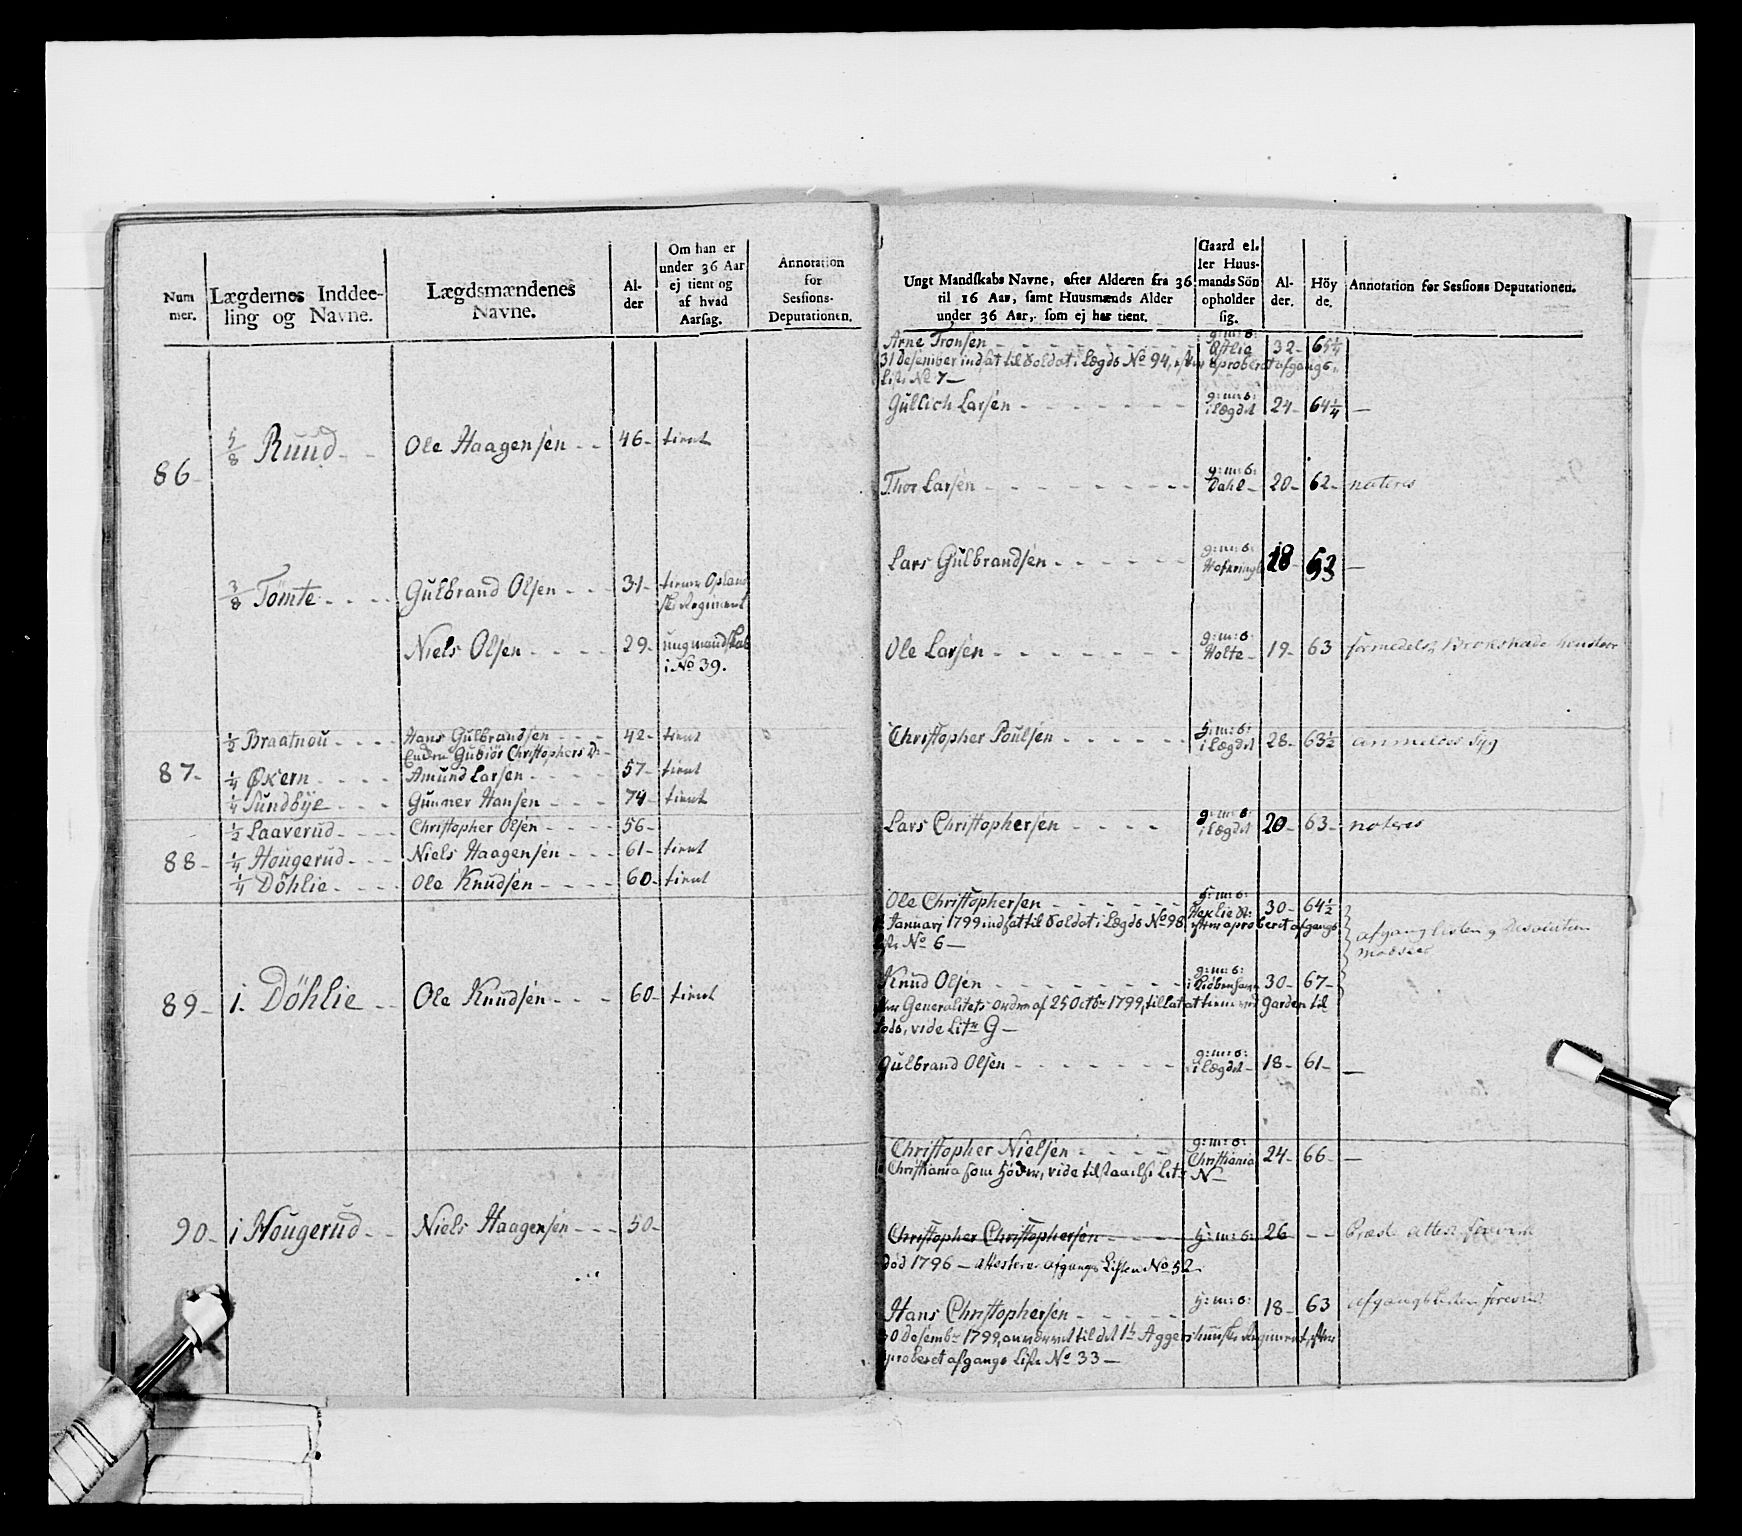 Num
mer.
Lægdernes Inddee-
ling og Navne.
Lægdsmændenes
Navne.
Al-
der
Om han er
under 36 Aar
ej tient og
af hvad
Aarsag.
Annotation
for
Sessions-
Deputationen.
86-
5/8 Ruud - -
Ole Haagensen - -
46-
tient
3/8 Tømte - - - -
Gulbrand Olsen - - -
31-
tiener Oplans
ske Regiment
Niels Olsen - - - -
29-
ungmandskab
i No 39.
87-
1/2 Braatnou - - - -
Hans Gulbrandsen - - -
42-
tient
Enken Gubiör Christophers D: -
1/4 Økern - - - -
Amund Larsen - - - -
57-
tient
1/4 Sundbye - - -
Gunner Hansen - - -
74-
tient
88-
1/2 Laaverud - - - -
Christopher Olsen - - - -
56-
1/4 Hougerud - - -
Niels Haagensen - - -
61-
tient
1/4 Döhlie - - - -
Ole Knudsen - - - -
60-
tient
89-
1. Döhlie - -
Ole Knudsen - - -
60-
tient
90-
1 Hougerud - -
Niels Haagensen - - -
50-
Ungt Mandskabs Navne, efter Alderen fra 36
til 16 Aar, samt Huusmænds Alder
under 36 Aar, som ej har tient.
Gaard el-
ler Huus-
mands Sön
opholder
sig.
Al-
der.
Höy
de.
Annotation for Sessions Deputationen.
Arne Tronsen - - - - - - - -
g: m: s:
Østlie
32-
65 1/4
31 Desember indsat til Soldat i Lægds No 94, efter aproberet afgangs-
Liste No 7 -
Gullich Larsen - - - - - - -
g: m: s:
i lægdet
24-
64 1/4
-
Thor Larsen - - - - - - - -
g: m: s:
Dahl -
20-
62-
noteres
Lars Gulbrandsen - - - - - -
g: m: s:
18
63
-
Ole Larsen - - - - - - -
g: m: s:
Holte -
19-
63
formedelst Brokskade
Christopher Poulsen - - - - - -
h: m: s:
i lægdet
28-
63 1/2
anmeldes syg
Lars Christophersen - - - -
g: m: s:
i lægdet
20-
63-
noteres
Ole Christophersen - - - - - -
h: m: s:
30-
64 1/2
Januarj 1799 indsat til Soldat i Lægds No 98. efter aproberet afgangs
Liste No 6 -
afgang listen
Knud Olsen - - - - - - - -
g: m: s:
i Kiöbenhavn
30-
67-
Generalitets ordre af 25 Octbr 1799, tillat at tiene ved Garden til
fods, vide Litr G -
Gulbrand Olsen - - - - - - -
g: m: s:
i lægdet -
18-
61-
-
Christopher Nielsen - - - - -
g: m: s:
Christiania
24-
66-
-
Christiania som vide Litr N -
Christopher Christophersen - - - -
h: m: s:
26
- -
Præste attest foreviist
död 1796 - afgangs Listen No 52
Hans Christophersen - - - - -
h: m: s:
18-
63
afgangs listen foreviist
30 Desembr 1799, til det 1te Aggershuuske Regiment, efter
aproberet afgangs Liste No 33 -